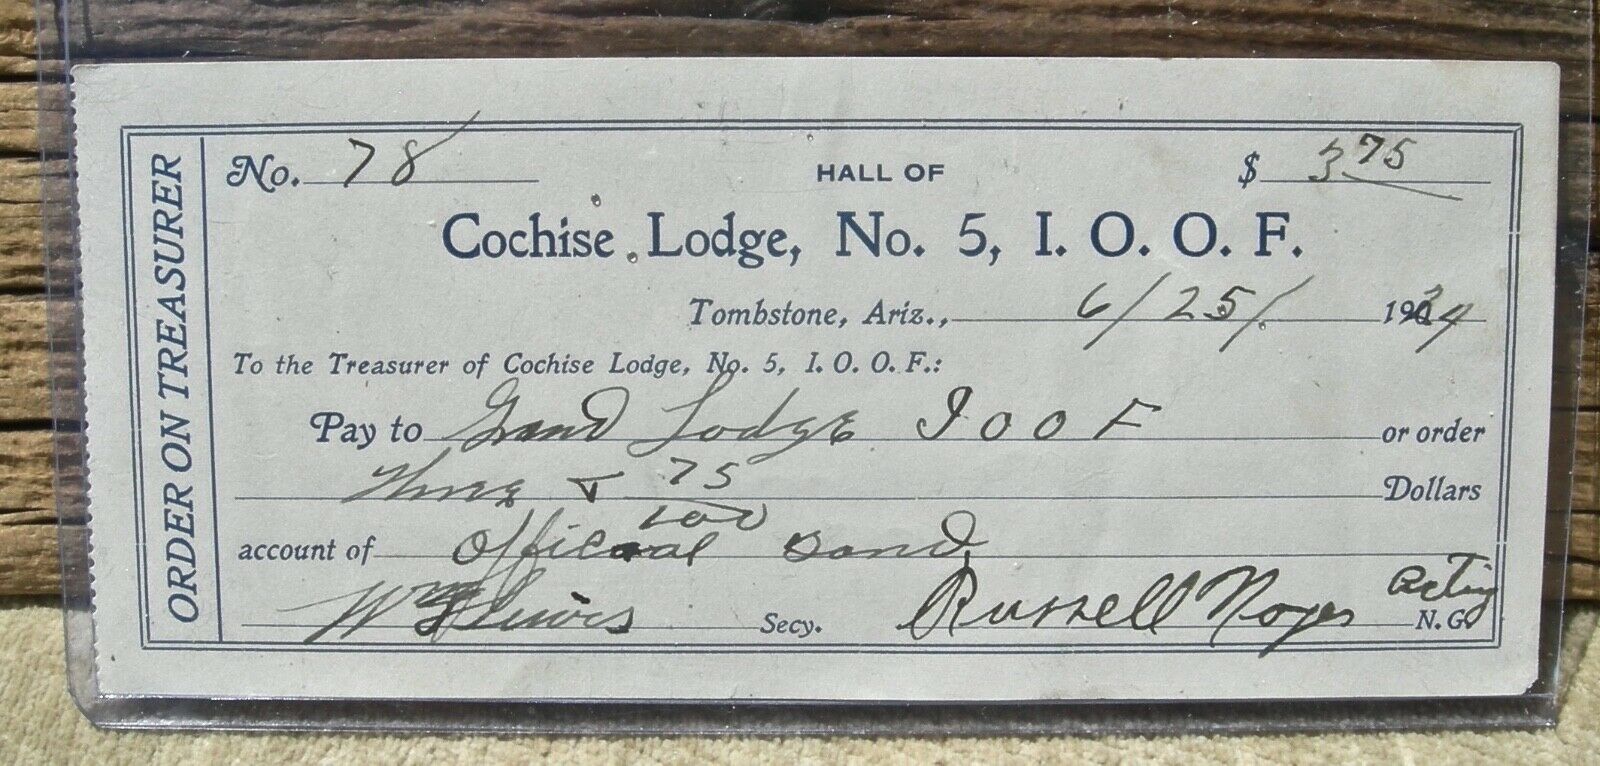 ORDER ON TREASURER
No. 78 HALL OF $ 3 75
Cochise Lodge, No. 5, I. O. O. F.
Tombstone, Ariz., 6/25/. 1934
To the Treasurer of Cochise Lodge, No. 5, I. O. O. F.:
Pay to Grand Lodge I O O F or order
Three & 75/100 Dollars
account of Official Bond
Wm Lewis Secy. Russell Noyes Acting N. G.